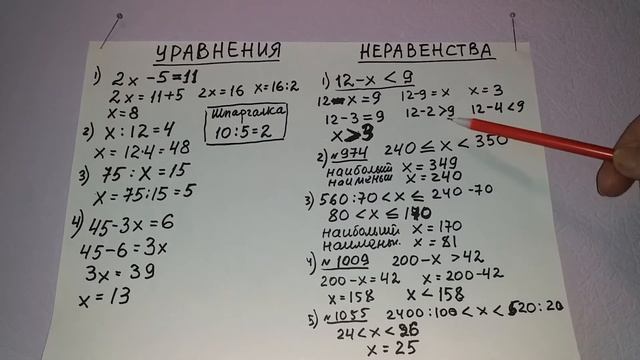 УРАВНЕНИЯ
1) 2x - 5 = 11
2x = 11+5 2x = 16 x = 16:2
x = 8
Шпаргалка
10:5=2
2) x : 12 = 4
x = 12·4 = 48
3) 75 : x = 15
x = 75:15 = 5
4) 45 - 3x = 6
45 - 6 = 3x
3x = 39
x = 13
НЕРАВЕНСТВА
1) 12 - x < 9
12 - x = 9 12 - 9 = x x = 3
12 - 3 = 9 12 - 2 > 9 12 - 4 < 9
x > 3
2) №974 240 ≤ x < 350
наибольший x = 349
наименьш x = 240
3) 560:70 < x ≤ 240 - 70
80 < x ≤ 170
наибольший x = 170
наименьш. x = 81
4) №1009 200 - x > 42
200 - x = 42 x = 200 - 42
x = 158 x < 158
5) №1055 2400:100 < x < 520:20
24 < x < 26
x = 25